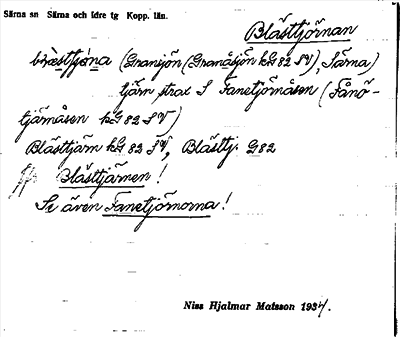 Särna sn Särna och Idre tg Kopp. län.
Blästtjörnan
(Gransjön (Granåsjön kG 82 SV), Särna)
tjärn strax S Fanetjörnåsen (Fånö-
tjärnåsen kG 82 SV)
Blästtjärn kG 82 SV, Blästtj. G 82
Blästtjärnen!
Se även Fanetjörnorna!
Niss Hjalmar Matsson 1937.